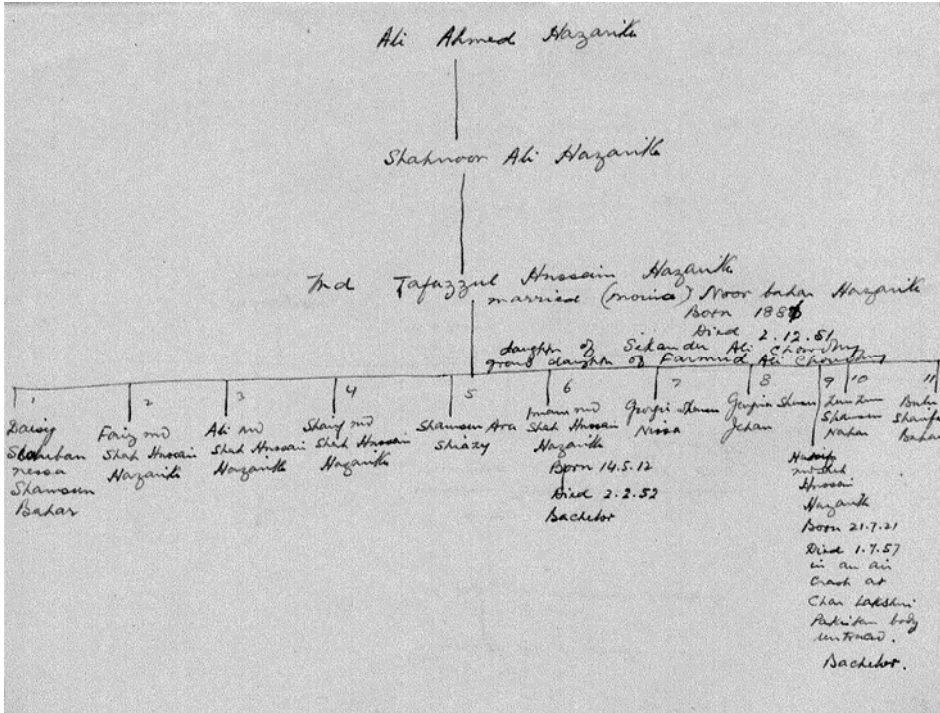 Ali Ahmed Hazarika
Shahnoor Ali Hazarika
Md Tafazzul Hussain Hazarika
married Noor bahar Hazarika
Born 188
Died 2.12.51
daughter of Sikander Ali Chowdhry
grand daughter of Farmud Ali Chowdhry
1
Daisy
Shamsun
Bahar
2
Faiz md
Shah Hussain
Hazarika
3
Ali md
Shah Hussain
Hazarika
4
Sharif md
Shah Hussain
Hazarika
5
Shamsun Ara
Shiazy
6
Imam md
Shah Hussain
Hazarika
Born 14.5.12
Died 2.2.52
Bachelor
7
Nissa
8
Jehan
9
md Shah
Hussain
Hazarika
Born 21.7.21
Died 1.7.57
in an air
crash at
Char Lakshmi
Pakistan body
untraced.
Bachelor.
10
Shamsun
Nahar
11
Sharifa
Bahar